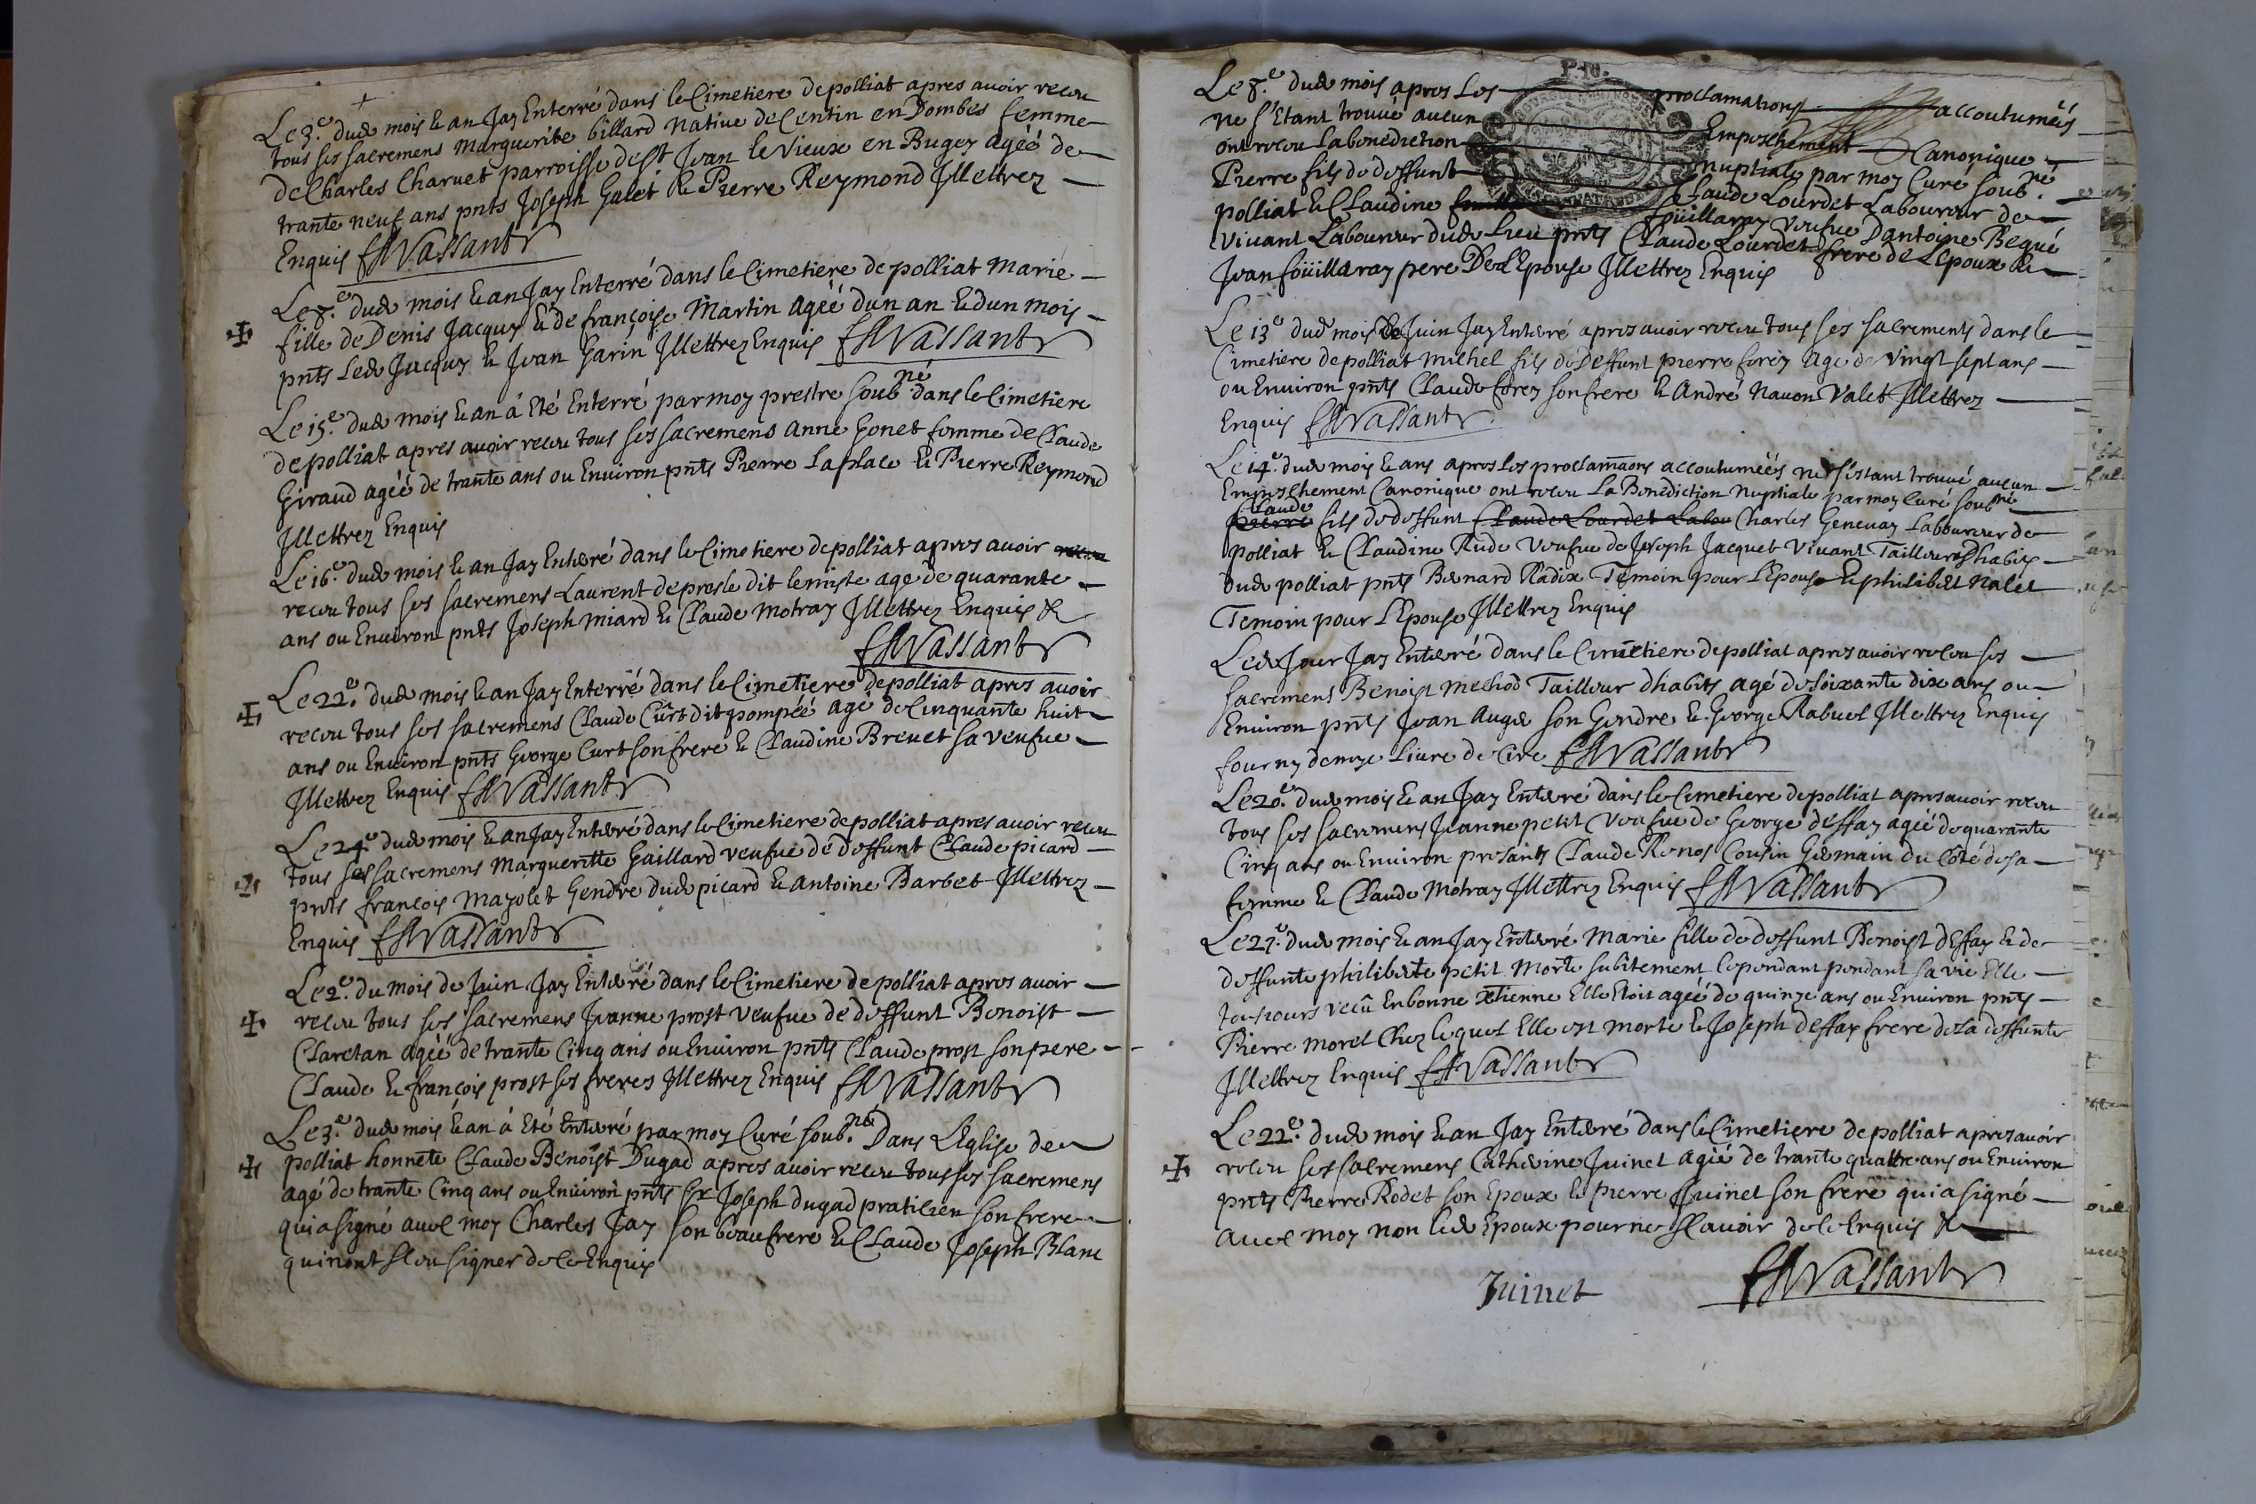 Le 3.e dud mois & an Jay Enterré dans le Cimetiere de polliat apres avoir receu
tous ses sacremens Marguerite billard Native de Centin en Dombes femme
de Charles Charvet parroisse de St Jean le Vieux en Bugey agéé de
trante neuf ans pnts Joseph Galet & Pierre Reymond Illettrez
Enquis Vassant
Le 8.e dud mois & an Jay Enterré dans le Cimetiere de polliat Marie
fille de Denis Jacquy & de françoise Martin agéé dun an & dun mois
pnts Led Jacquy & Jean Garin Illettrez Enquis Vassant
Le 15.e dud mois & an à Eté Enterré par moy prestre soub.né dans le Cimetiere
de polliat apres avoir receu tous ses sacremens anne Gonet femme de Claude
Giraud agéé de trante ans ou Environ pnts Pierre Laplace & Pierre Reymond
Illettrez Enquis
Le 16.e dud mois & an Jay Enterré dans le Cimetiere de polliat apres avoir receu
receu tous ses sacremens Laurent de presle dit lemiste age de quarante
ans ou Environ pnts Joseph Miard & Claude Motray Illettrez Enquis &
Vassant
Le 22.e dud mois & an Jay Enterré dans le Cimetiere de polliat apres avoir
receu tous ses sacremens Claude Curt dit pompéé age de Cinquante huit
ans ou Environ pnts George Curt son frere & Claudine Brevet sa veufue
Illettrez Enquis Vassant
Le 24.e dud mois & an Jay Enterré dans le Cimetiere de polliat apres avoir receu
tous ses sacremens Margueritte Gaillard veufue de deffunt Claude picard
pnts francois Mazolet Gendre dud picard & antoine Barbet Illettrez
Enquis Vassant
Le 2.e du mois de Juin Jay Enterré dans le Cimetiere de polliat apres avoir
receu tous ses sacremens Jeanne prost veufue de deffunt Benoist
Claretan agéé de trante Cinq ans ou Environ pnts Claude prost son pere
Claude & françois prost ses freres Illettrez Enquis Vassant
Le 3.e dud mois & an à Eté Enterré par moy Curé soub.né Dans L'Eglise de
polliat honnete Claude Benoist Dugad apres avoir receu tous ses sacremens
agé de trante Cinq ans ou Environ pnts Sr Joseph dugad pratilien son frere
qui a signé avec moy Charles Jay son beaufrere & Claude Joseph Blanc
qui nont sceu signer de ce Enquis
Le 8.e dud mois apres Les proclamations accoutuméés
ne s'Etant trouvé aucun Empeschement Canonique
ont receu La benediction nuptiale par moy Curé soub.né
Pierre fils de deffunt Claude Lourdet Laboureur de
polliat & Claudine foüillaray veufue D'antoine Bequé
vivant Laboureur dud Lieu pnts Claude Lourdet frere de L'epoux &
Jean foüillaray pere De L'Epouse Illettrez Enquis
Le 13.e dud mois de Juin Jay Enterré apres avoir receu tous ses sacrements dans le
Cimetiere de polliat Michel fils de Deffunt pierre forez Age de vingt sept ans
ou Environ pnts Claude forez son frere & André Navon Valet Illettrez
Enquis Vassant
Le 14.e dud mois & ans apres Les proclamaons accoutuméés ne s'éstant trouvé aucun
Empeschement Canonique ont receu La Benediction Nuptiale par moy Curé soub.né
Claude
Pierre fils de deffunt Claude Lourdet Labou Charles Genevay Laboureur de
polliat & Claudine Rude veufue de Joseph Jacquet Vivant Tailleur d'habits
dud polliat pnts Bernard Radix Temoin pour L'Epouse & philibert Nalet
Temoin pour L'Epouse Illettrez Enquis
Led Jour Jay Enterré dans le Cimetiere de polliat apres avoir receu ses
sacremens Benoist Mechod Tailleur d'habits agé de soixante dix ans ou
Environ pnts Jean Auger son Gendre & George Rabuel Illettrez Enquis
fourny demye Livre de Cire Vassant
Le 20.e dud mois & an Jay Enterré dans le Cimetiere de polliat apres avoir receu
tous ses sacremens Jeanne petit veufue de George deffay agéé de quarante
Cinq ans ou Environ presants Claude Renos Cousin Germain du Côté de sa
femme & Claude Motray Illettrez Enquis Vassant
Le 21.e dud mois & an Jay Enterré Marie fille de deffunt Benoist d'Effay & de
deffunte philiberte petit Morte subitement Cependant pendant sa vie Elle
tousiours vecû En bonne xtienne Elle Etoit agéé de quinze ans ou Environ pnts
Pierre Morel Chez lequel Elle est morte & Joseph deffay frere de la deffunte
Illettrez Enquis Vassant
Le 22.e dud mois & an Jay Enterré dans le Cimetiere de polliat apres avoir
receu ses sacremens Catherine Juinet agéé de trante quattre ans ou Environ
pnts Pierre Rodet son Epoux & pierre Juinet son frere qui a signé
avec moy non led Epoux pour ne sçavoir de ce Enquis &
Juinet Vassant